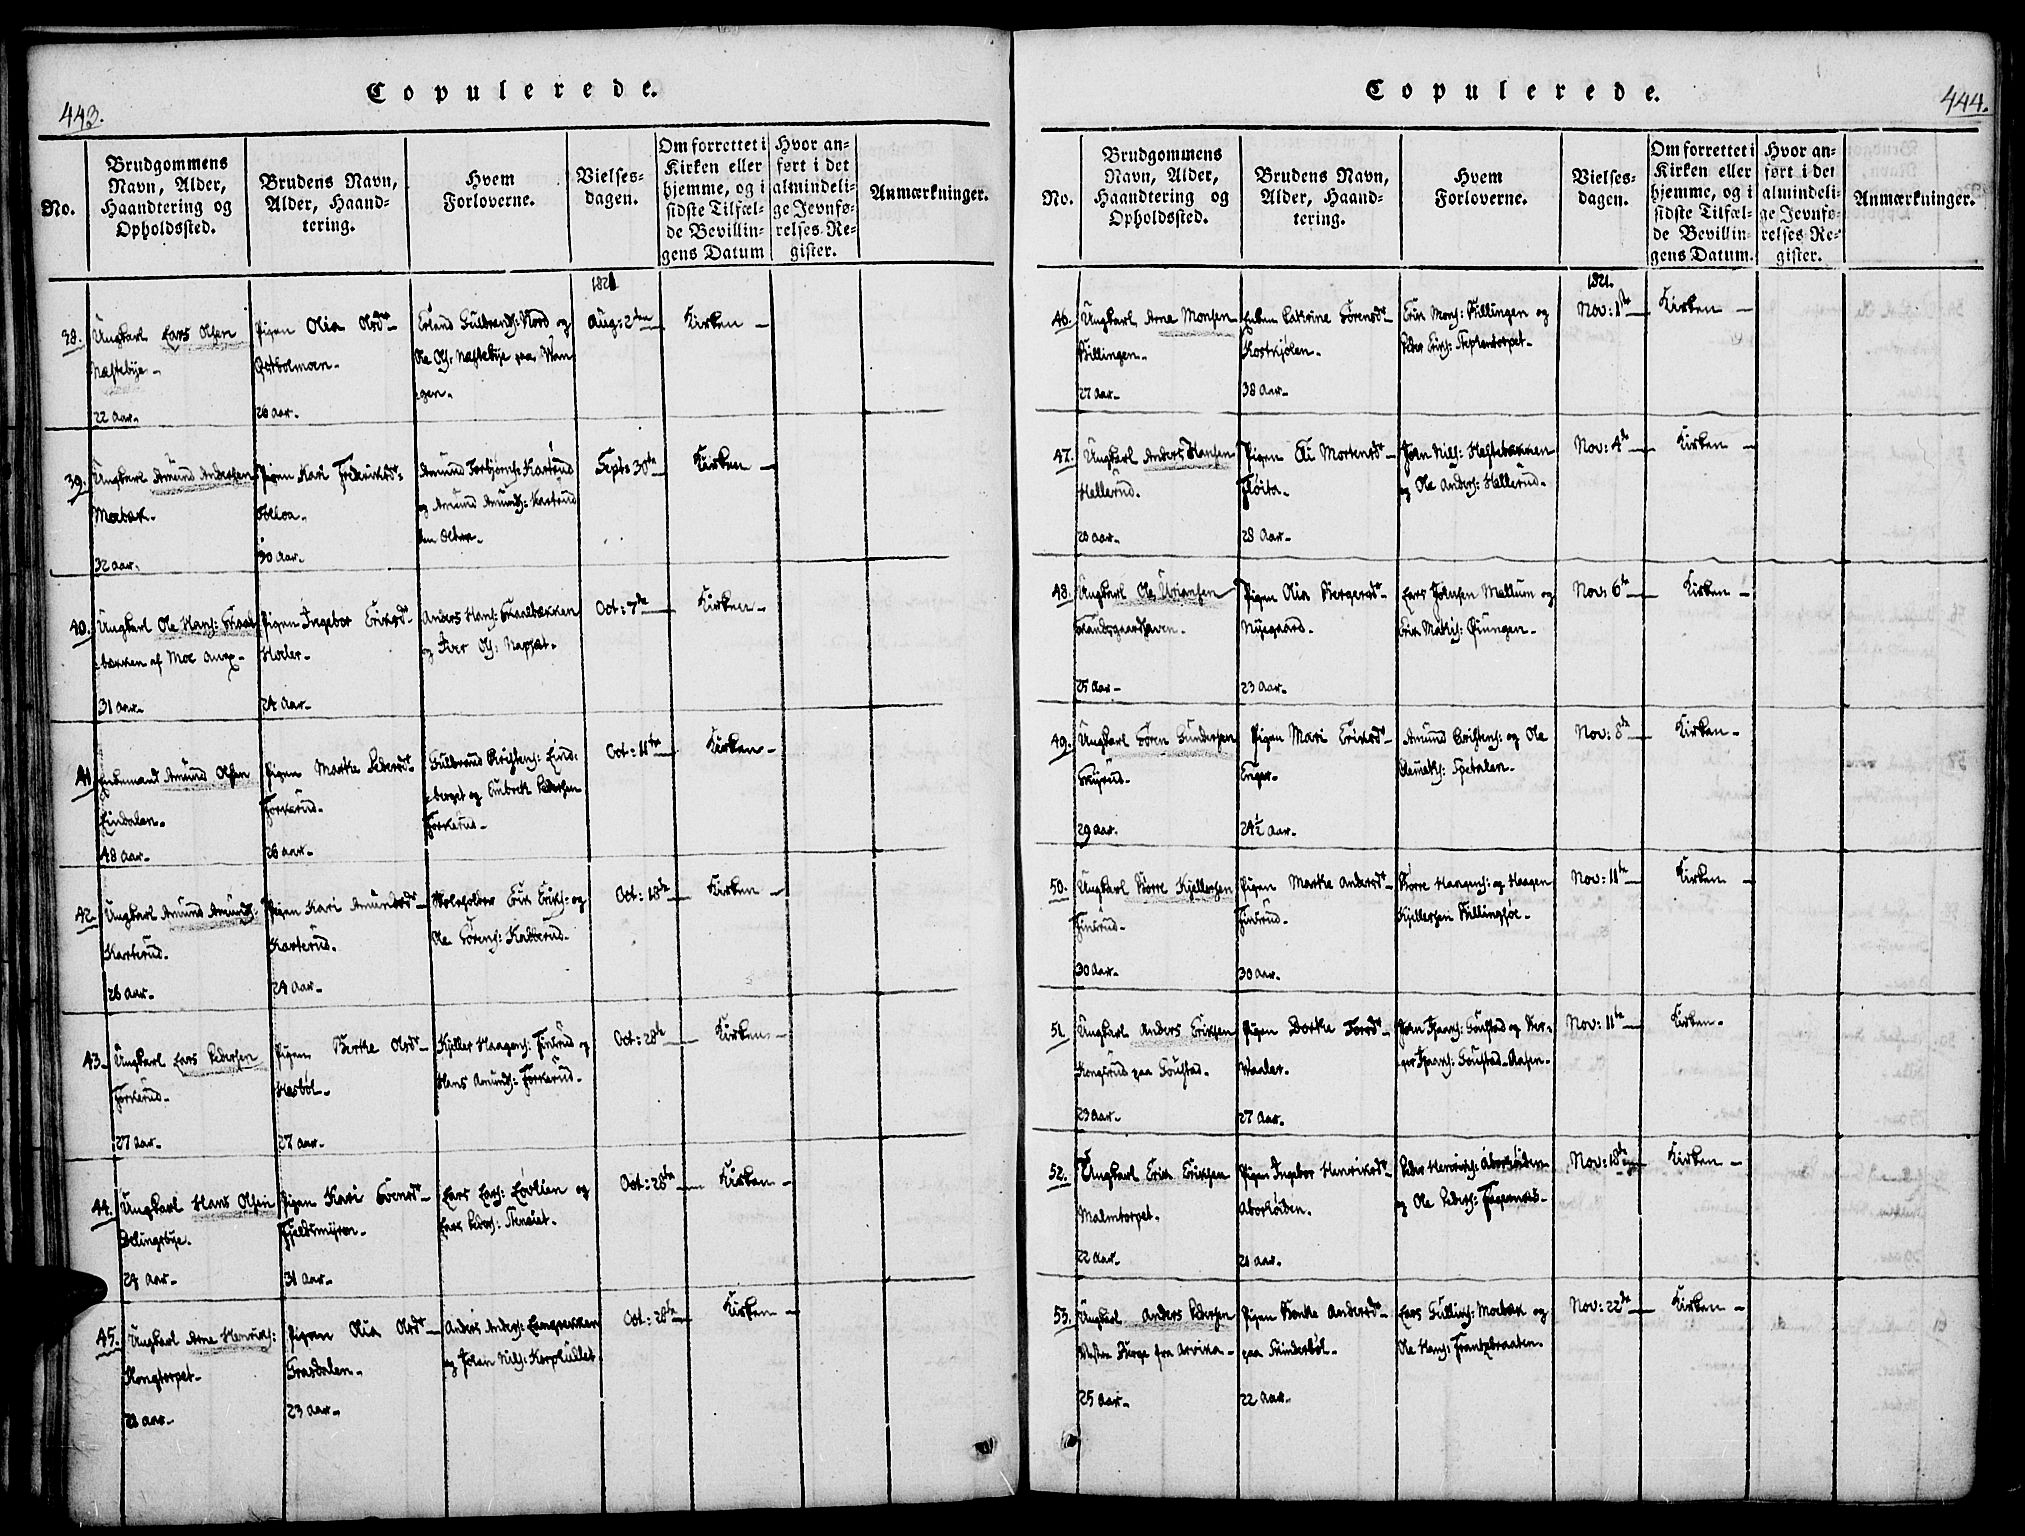 443.
Copulerede.
No.
Brudgommens
Navn, Alder,
Haandtering og
Opholdssted.
Brudens Navn,
Alder, Haand-
tering.
Hvem
Forloverne.
Vielses-
dagen.
Om forrettet i
Kirken eller
hjemme, og i
sidste Tilfæl-
de Bevillin-
gens Datum
Hvor an-
ført i det
almindeli-
ge Jevnfø-
relses-Re-
gister.
Anmærkninger.
1821
38.
Ungkarl Lars Olsen
Næstebye-
22 aar.
Pigen Olia Olsdr-
26 aar.
Erland Gulbrands: Nord og
Ole Ols: Næstebye paa Wan
gen-
Aug: 2den
Kirken-
39.
Ungkarl Amund Andersen
Moebæk.
32 aar.
Pigen Kari Frederiksdr
30 aar.
Amund Torbjørns: Karterud
og Amund Amunds: Karterud
den
Septb 30te
Kirken-
40.
Ungkarl Ole Hans: Graae
bækken af Moe anx-
31 aar.
Pigen Ingebor Eriksdr
24 aar-
Anders Hans: Graaebækken
og Iver Ols: Napset-
Oct: 7de
Kirken-
41
Enkemand Amund Olsen
Lindalen.
48 aar-
Pigen Marthe Pedersdr
Forkerud-
26 aar-
Gulbrand Christens: Lind:
berget og Embrek Pedersen
Forkerud-
Oct: 11te
Kirken-
42
Ungkarl Amund Amunds:
Karterud.
26 aar-
Pigen Kari Amundsdr
Karterud-
24 aar-
Skoleholder Erik Eriks: og
Ole Sörens: Kadderud-
Oct: 18de
Kirken-
43-
Ungkarl Lars Pedersen
Forkerud-
27 aar-
Pigen Berthe Olsdr-
Hesböl-
27 aar-
Kjeller Haagens: Finsrud og
Hans Amunds: Forkerud-
Oct: 28de
Kirken-
44.
Ungkarl Hans Olsen
24 aar-
Pigen Kari Svensdr-
Fjeldsmyren-
31 aar-
Lars Lars: Lövlien og
Lars Peders:
Oct: 28de
Kirken-
45.
Ungkarl Arne Henriks:
Kongtorpet-
28 aar-
Pigen Olia Olsdr-
Graasdalen-
23 aar-
Anders Anders: Langbækken
og Johan Nils: Korphullet-
Oct: 28de
Kirken-
444.
Copulerede.
No.
Brudgommens
Navn, Alder,
Haandtering og
Opholdssted.
Brudens Navn,
Alder, Haand-
tering.
Hvem
Forloverne.
Vielses-
dagen.
Om forrettet i
Kirken eller
hjemme, og i
sidste Tilfæl-
de Bevillin-
gens Datum.
Hvor an-
ført i det
almindeli-
ge Jevnfø-
relses-Re-
gister.
Anmærkninger.
1821.
46.
Ungkarl Arne Monsen
Billingen-
27 aar-
Enken Cathrine Sörensdr
38 aar-
Erik Mons: Billingen og
Peder Eriks: Stephantorpet-
Nov: 1ste
Kirken-
47.
Ungkarl Anders Hansen
Hellerud-
20 aar-
Pigen Eli Mortensdr-
Flöita-
28 Aar-
John Nils: Hestebækken
og Ole Anders: Hellerud-
Nov: 4de
Kirken-
48.
Ungkarl Ole Uriansen
25 Aar-
Pigen Olia Bergersdr-
Nyegaard-
23 aar-
Lars Johnsen Mellum og
Erik Mathis: Öiungen-
Nov: 6te
Kirken-
49.
Ungkarl Sören Gundersen
Skyrud-
29 aar-
Pigen Mari Eriksdr-
Enger-
24½ aar-
Amund Christens: og Ole
Clemets: Spetalen-
Nov: 8de
Kirken-
50.
Ungkarl Börre Kjellersen
Finsrud-
30 aar-
Pigen Marthe Andersdr-
Finsrud-
30 aar-
Börre Haagens: og Haagen
Kjellersen Billingsöe-
Nov: 11te
Kirken-
51
Ungkarl Anders Eriksen
Kongsrud paa Soustad-
23 aar-
Pigen Dorthe Torsdr-
Waaler-
27 aar-
John Haars: Soustad og Ber-
ger Haars: Soustad-Aasen-
Nov: 11te
Kirken-
52.
Ungkarl Erik Eriksen
Malmtorpet-
22 aar-
Pigen Ingebor Henriksdr-
Aborhöiden-
20 aar-
Peder Henriks: Aborhöiden
og Ole Peders: Fagernæs-
Nov: 18de
Kirken-
53.
Ungkarl Anders Pedersen
Westra Berge fra Arvika-
25 aar-
Pigen Benthe Andersdr
paa Skinderböl-
22 aar-
Lars Gullms: Moebæk og
Ole Hans: Frantzbraaten-
Nov: 22de
Kirken-